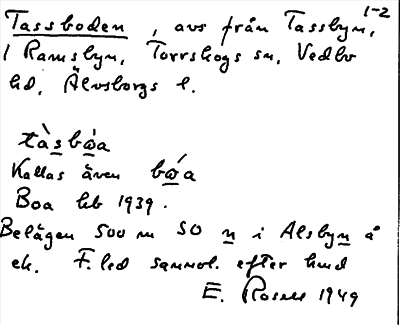 1-2
Tassboden, avs från Tassbyn,
i Ramsbyn, Torrskogs sn, Vedbo
hd, Älvsborgs l.
tàsbὼa
Kallas även bώa
Boa kb 1939.
Belägen 500 m SO n i Alsbyn å
ek. F.led sannol. efter hund
E. Rosell 1949